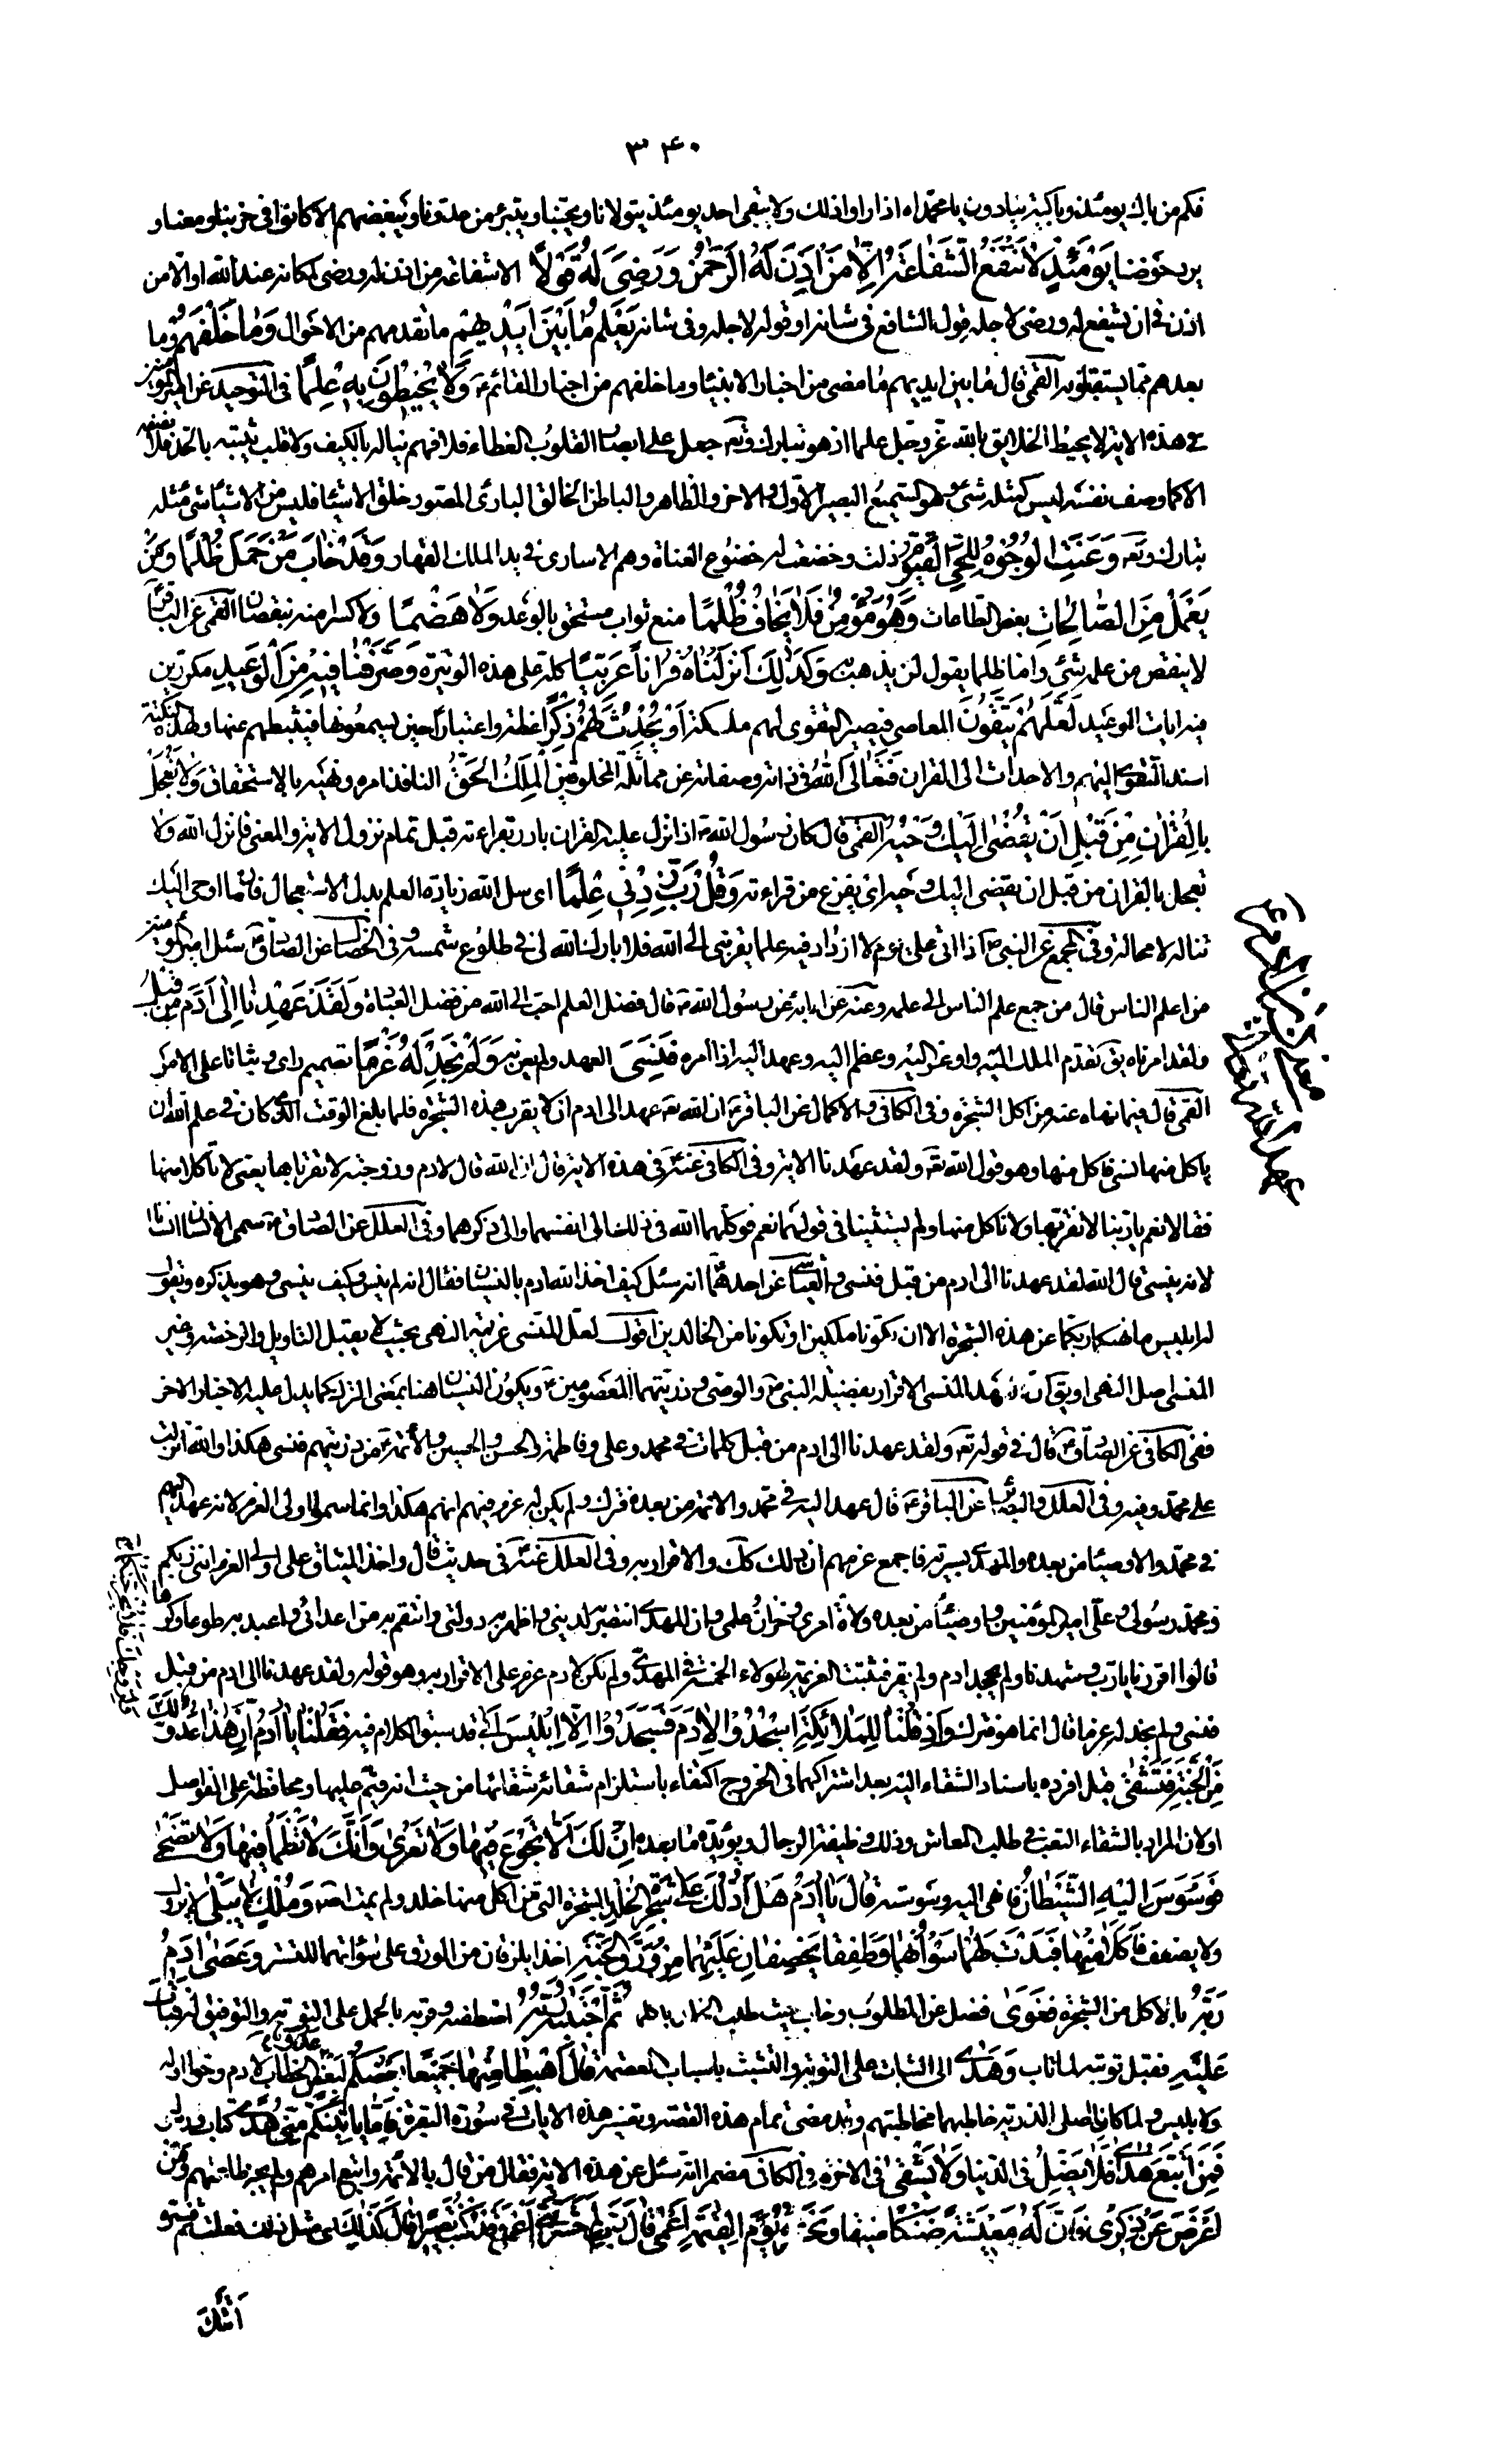 ٣٤٠
فكم من باك يومئذ وباكية ينادون يا محمداه اذا راوا ذلك ولا يبقى احد يومئذ يتولانا ويحبنا ويتبرء من عدونا ويبغضهم الا كانوا في حزبنا ومعنا و
يرد حوضنا يَوْمَئِذٍ لا تَنْفَعُ الشَّفاعَةُ اِلّا مَنْ اَذِنَ لَهُ الرَّحْمنُ وَرَضِيَ لَهُ قَوْلاً الا شفاعة من اذن له ورضي لمكانه عند الله او الا من
اذن في ان يشفع له ورضي لاجله قول الشافع في شانه او قوله لاجله وفي شانه يَعْلَمُ ما بَيْنَ اَيْديهِمْ ما تقدمهم من الاحوال وَما خَلْفَهُمْ وما
بعدهم مما يستقبلونه القمي قال ما بين ايديهم ما مضى من اخبار الانبياء وما خلفهم من اخبار القائم ع وَلا يُحيطُونَ بِهِ عِلْماً في التوحيد عن امير المؤمنين
ع في هذه الاية لا يحيط الخلايق بالله عز وجل علما اذ هو تبارك وتعه جعل على ابصار القلوب الغطاء فلا فهم يناله بالكيف ولا قلب يثبته بالحد فلا نصفه
الا كما وصف نفسه ليس كمثله شئ وهو السميع البصير الاول والاخر والظاهر والباطن الخالق البارئ المصور خلق الاشياء فليس من الاشياء شئ مثله
تبارك وتعه وَعَنَتِ الْوُجُوهُ لِلْحَيِّ الْقَيُّومِ ذلت وخضعت له خضوع العناة وهم الاسارى في يد الملك القهار وَقَدْ خابَ مَنْ حَمَلَ ظُلْماً وَمَنْ
يَعْمَلْ مِنَ الصّالِحاتِ بعض الطاعات وَهُوَ مُؤْمِنٌ فَلا يَخافُ ظُلْماً منع ثواب مستحق بالوعد وَلا هَضْماً ولا كسرا منه بنقصان القمي عن الباقر ع
لا ينقص من عمله شئ واما ظلما يقول لن يذهب به وَكَذلِكَ اَنْزَلْناهُ قُرْاناً عَرَبِيّاً كله على هذه الوتيرة وَصَرَّفْنا فيهِ مِنَ الْوَعيدِ مكررين
فيه ايات الوعيد لَعَلَّهُمْ يَتَّقُونَ المعاصي فيصير التقوى لهم ملكة اَوْ يُحْدِثُ لَهُمْ ذِكْراً عظة واعتبارا حين يسمعونها فيثبطهم عنها ولهذه النكتة
اسند التقوى اليهم والاحداث الى القران فَتَعالَى اللهُ في ذاته وصفاته عن مماثلة المخلوقين الْمَلِكُ الْحَقُّ النافذ امره ونهيه بالاستحقاق وَلا تَعْجَلْ
بِالْقُرْانِ مِنْ قَبْلِ اَنْ يُقْضى اِلَيْكَ وَحْيُهُ القمي قال كان رسول الله ص اذا نزل عليه القران بادر بقراءته قبل تمام نزول الاية والمعنى فانزل الله ولا
تعجل بالقران من قبل ان يقضى اليك وحيه اي يفرغ من قراءته وَقُلْ رَبِّ زِدْني عِلْماً اي سل الله زيادة العلم بدل الاستعجال فان ما اوحي اليك
تناله لا محالة وفي المجمع عن النبي ص اذا اتى علي يوم لا ازداد فيه علما يقربني الى الله فلا بارك الله لي في طلوع شمسه وفي الخصال عن الصادق ع سئل امير المؤمنين
من اعلم الناس قال من جمع علم الناس الى علمه وعنه عن ابائه عن رسول الله ص قال فضل العلم احب الى الله من فضل العبادة وَلَقَدْ عَهِدْنا اِلى ادَمَ مِنْ قَبْلُ
ولقد امرناه يق تقدم الملك اليه واوعز اليه وعظم اليه وعهد اليه اذا امره فَنَسِيَ العهد ولم يعن به وَلَمْ نَجِدْ لَهُ عَزْماً تصميم راي وثباتا على الامر
القمي قال فيما نهاه عنه من اكل الشجرة وفي الكافي والاكمال عن الباقر ع ان الله تعه عهد الى ادم ان لا يقرب هذه الشجرة فلما بلغ الوقت الذي كان في علم الله ان
ياكل منها نسي فاكل منها وهو قول الله تعه ولقد عهدنا الاية وفي الكافي عنه ع في هذه الاية قال ان الله قال لادم وزوجته لا تقرباها يعني لا تاكلا منها
فقالا نعم يا ربنا لا نقربها ولا ناكل منها ولم يستثنيا في قولهما نعم فوكلهما الله في ذلك الى انفسهما والى ذكرهما وفي العلل عن الصادق ع سمي الانسان انسانا
لانه ينسى قال الله لقد عهدنا الى ادم من قبل فنسي والعياشي عن احدهما انه سئل كيف اخذ الله ادم بالنسيان فقال انه لم ينس وكيف ينسى وهو يذكره ويقول
له ابليس ما نهيكما ربكما عن هذه الشجرة الا ان تكونا ملكين او تكونا من الخالدين اقول لعل المنسي عزيمة النهي بحيث لا يقبل التاويل والرخصة وغير
المنسي اصل النهي او يق ان العهد المنسي الاقرار بفضيلة النبي ص والوصي وذريتهما المعصومين ع ويكون النسيان هنا بمعنى الترك كما يدل عليه الاخبار الاخر
ففي الكافي عن الصادق ع قال في قوله تعه ولقد عهدنا الى ادم من قبل كلمات في محمد وعلي وفاطمة والحسن والحسين والائمة ع من ذريتهم فنسي هكذا والله انزلت
على محمد ص وفيه وفي العلل والبصائر عن الباقر ع قال عهد اليه في محمد والائمة من بعده فترك ولم يكن له عزم فيهم انهم هكذا وانما سموا اولي العزم لانه عهد اليهم
في محمد والاوصياء من بعده والمهدي وسيرته فاجمع عزمهم ان ذلك كك والاقرار به وفي العلل عنه ع في حديث قال واخذ الميثاق على اولي العزم انني ربكم
ومحمد رسولي وعلي امير المؤمنين واوصياؤه من بعده ولاة امري وخزان علمي وان المهدي انتصر به لديني واظهر به دولتي وانتقم به من اعدائي واعبد به طوعا وكرها
قالوا اقررنا يا رب وشهدنا ولم يجحد ادم ولم يقر فثبتت العزيمة لهؤلاء الخمسة في المهدي ولم تكن لادم عزم على الاقرار به وهو قوله ولقد عهدنا الى ادم من قبل
فنسي ولم نجد له عزما قال انما هو فترك وَاِذْ قُلْنا لِلْمَلائِكَةِ اسْجُدُوا لِادَمَ فَسَجَدُوا اِلّا اِبْليسَ اَبى قد سبق الكلام فيه فَقُلْنا يا ادَمُ اِنَّ هذا عَدُوٌّ لَكَ
مِنَ الْجَنَّةِ فَتَشْقى قيل افرده باسناد الشقاء اليه بعد اشتراكهما في الخروج اكتفاء باستلزام شقائه شقائها من حيث انه قيم عليها ومحافظة على الفواصل
او لان المراد بالشقاء التعب في طلب المعاش وذلك وظيفة الرجال ويؤيده ما بعده اِنَّ لَكَ اَلّا تَجُوعَ فيها وَلا تَعْرى وَاَنَّكَ لا تَظْمَأُ فيها وَلا تَضْحى
فَوَسْوَسَ اِلَيْهِ الشَّيْطانُ فانهى اليه وسوسته قالَ يا ادَمُ هَلْ اَدُلُّكَ عَلى شَجَرَةِ الْخُلْدِ الشجرة التي من اكل منها خلد ولم يمت اصلا وَمُلْكٍ لا يَبْلى لا يزول
ولا يضعف فَاَكَلا مِنْها فَبَدَتْ لَهُما سَوْاتُهُما وَطَفِقا يَخْصِفانِ عَلَيْهِما مِنْ وَرَقِ الْجَنَّةِ اخذا يلزقان من الورق على سواتهما للتستر وَعَصى ادَمُ
رَبَّهُ بالاكل من الشجرة فَغَوى فضل عن المطلوب وخاب حيث طلب الخلد باكلها ثُمَّ اجْتَباهُ رَبُّهُ اصطفيه وقربه بالحمل على التوبة والتوفيق له فَتابَ
عَلَيْهِ فقبل توبته لما تاب وَهَدى الى الثبات على التوبة والتشبث باسباب العصمة قالَ اهْبِطا مِنْها جَميعاً بَعْضُكُمْ لِبَعْضٍ عَدُوٌّ الخطاب لادم وحوا اوله
ولابليس ولما كانا اصلي الذرية خاطبهما مخاطبتهم وقد مضى تمام هذه القصة وتفسير هذه الايات في سورة البقرة فَاِمّا يَأْتِيَنَّكُمْ مِنّي هُدىً كتاب ورسول
فَمَنِ اتَّبَعَ هُدايَ فَلا يَضِلُّ في الدنيا وَلا يَشْقى في الاخرة وفي الكافي مضمرا انه سئل عن هذه الاية فقال من قال بالائمة واتبع امرهم ولم يجز طاعتهم وَمَنْ
اَعْرَضَ عَنْ ذِكْري فَاِنَّ لَهُ مَعيشَةً ضَنْكاً ضيقا وَنَحْشُرُهُ يَوْمَ الْقِيمَةِ اَعْمى قالَ رَبِّ لِمَ حَشَرْتَني اَعْمى وَقَدْ كُنْتُ بَصيراً قالَ كَذلِكَ اي مثل ذلك فعلت ثم فسره
اَتَتْكَ